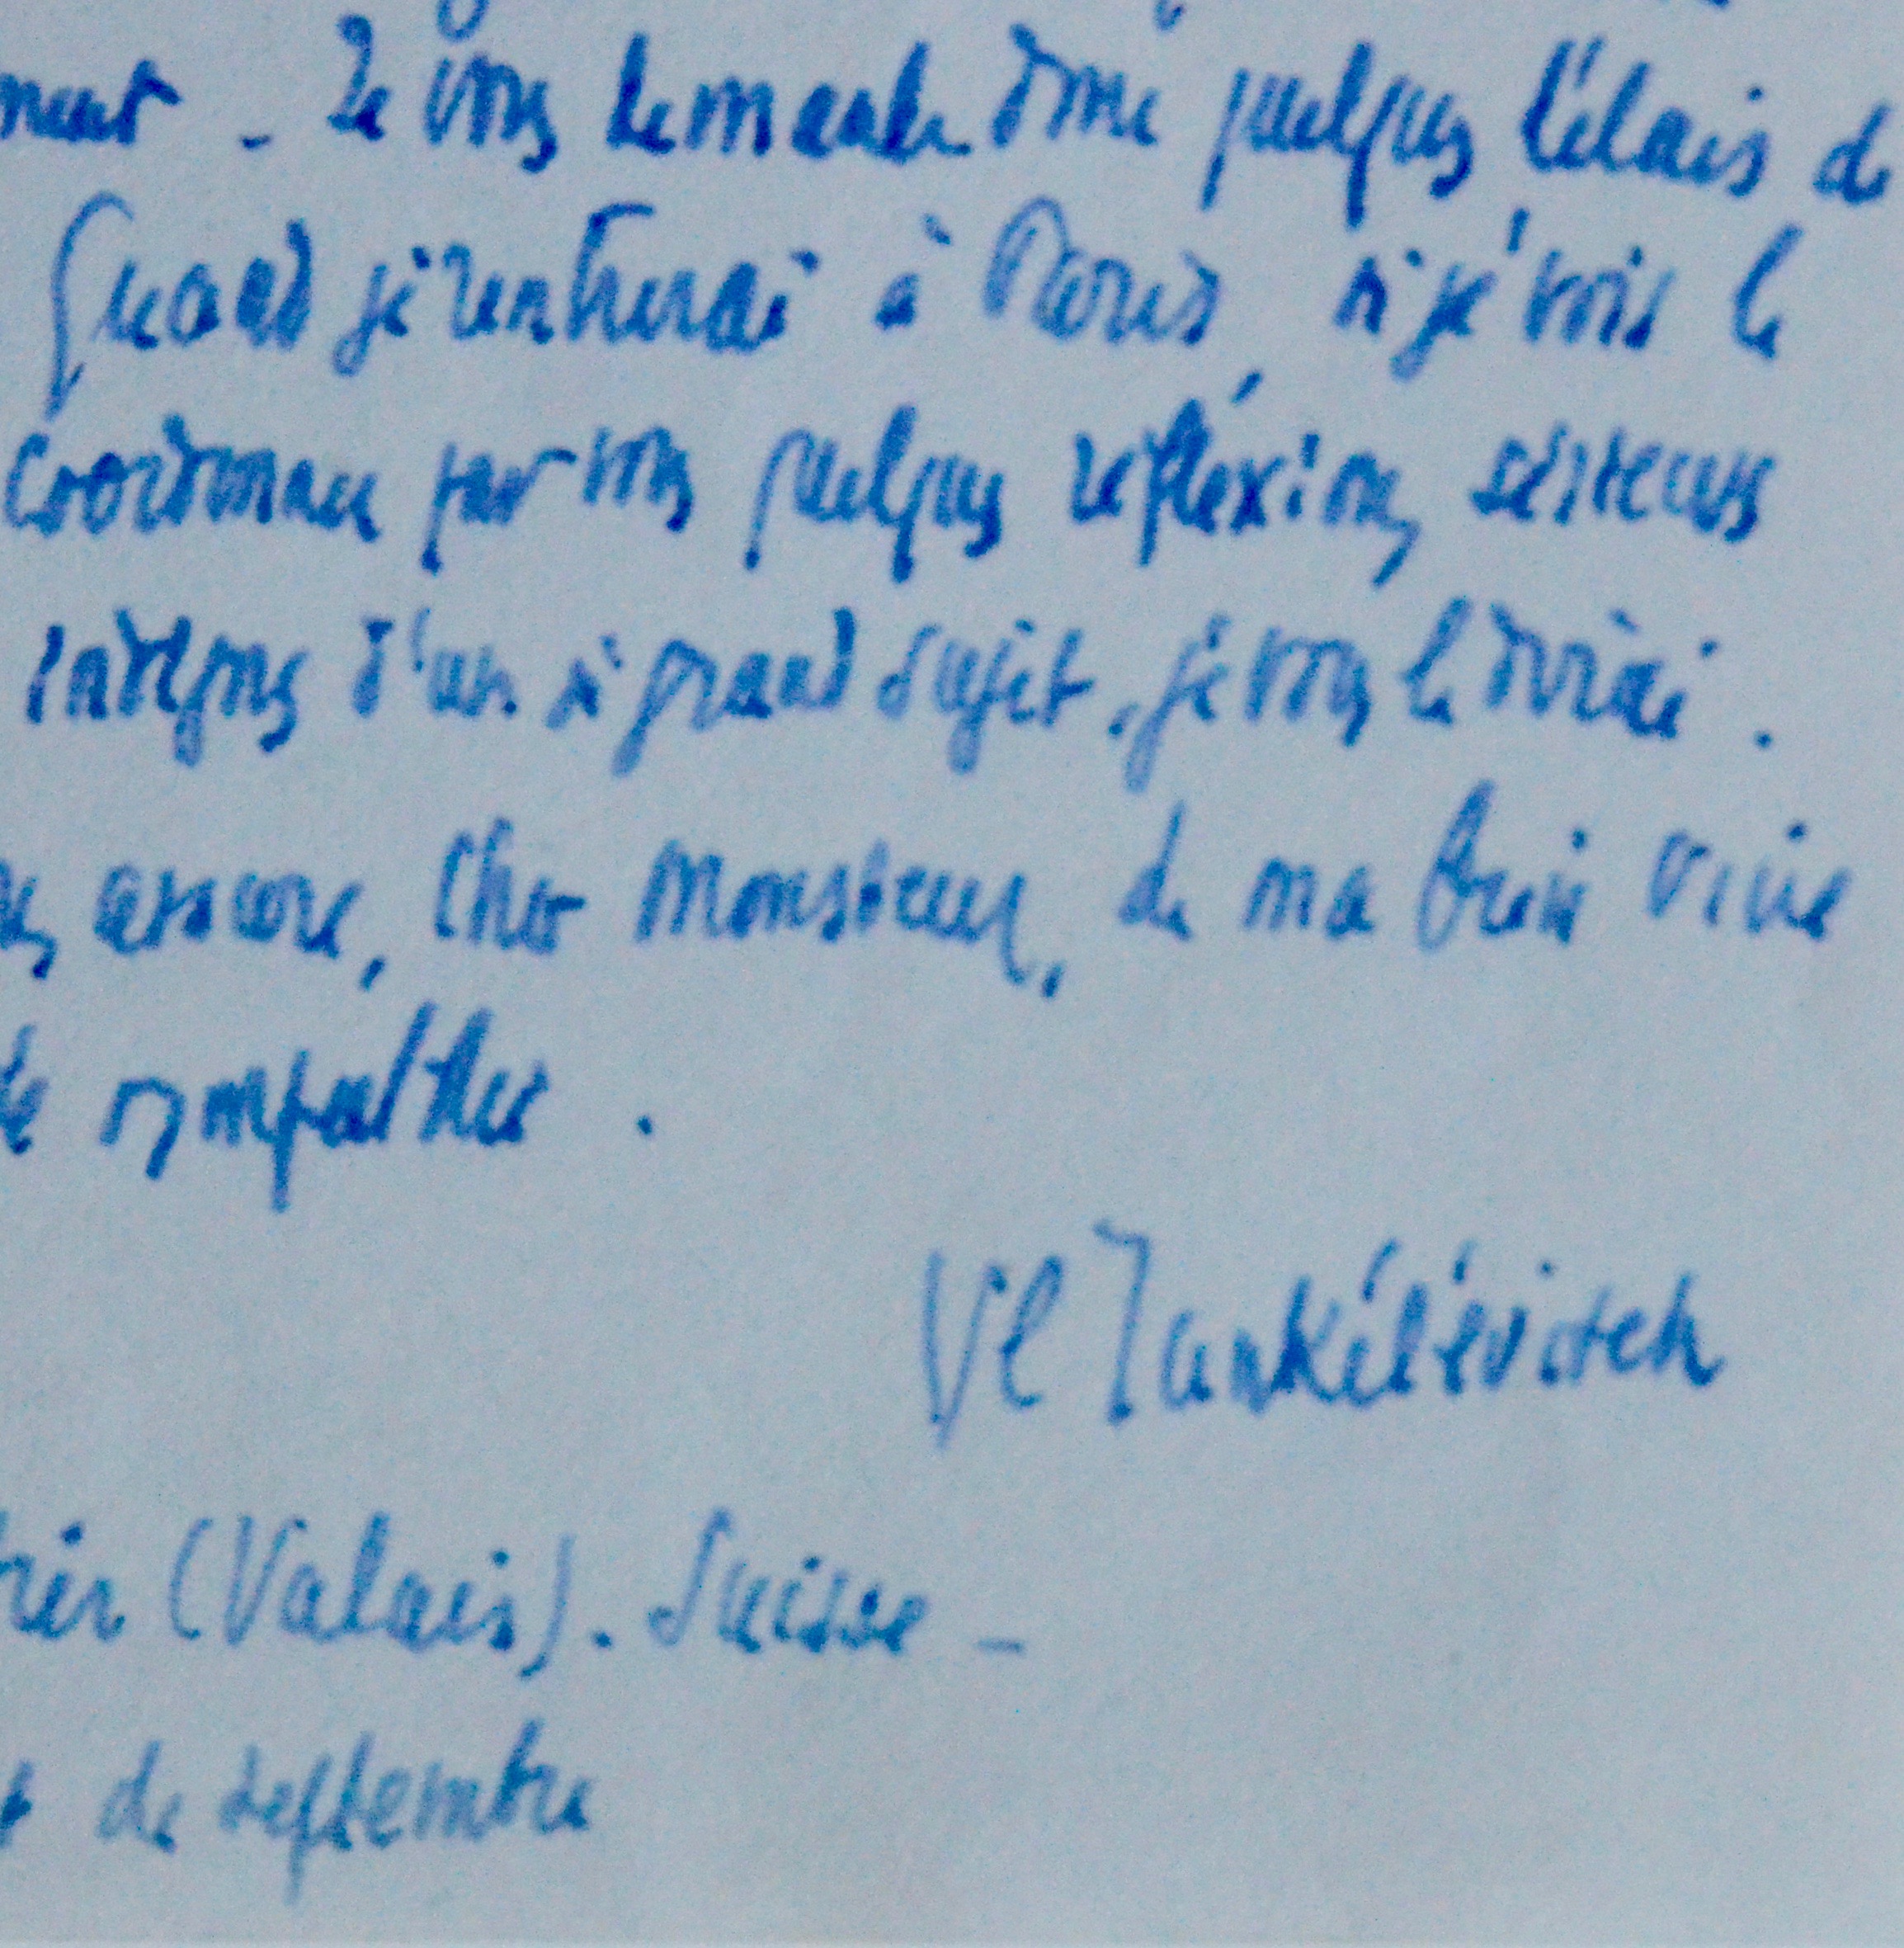 ment - Je vous demande donc quelques délais de
Quand je rentrerai à Paris, si je vois le
coordonner pour vous quelques refléxions sérieuses
indignes d'un si grand sujet, je vous le dirai.
assure, Cher Monsieur, de ma bien vive
sympathie.
Vl Jankélévitch
(Valais). Suisse -
de septembre